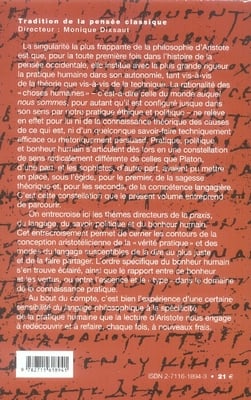 Tradition de la pensée classique
Directeur : Monique Dixsaut
La singularité la plus frappante de la philosophie d'Aristote
est que, pour la toute première fois dans l'histoire de la
pensée occidentale, elle institue avec la plus grande rigueur
la pratique humaine dans son autonomie, tant vis-à-vis
de la théorie que vis-à-vis de la technique. La rationalité des
« choses humaines » – c'est-à-dire du monde auquel
nous sommes, pour autant qu'il est configuré jusque dans
son sens par notre pratique éthique et politique – ne relève
en effet pour lui ni de la connaissance théorique des causes
de ce qui est, ni d'un quelconque savoir-faire techniquement
efficace ou rhétoriquement persuasif. Pratique, politique
et bonheur humain s'articulent dès lors en une constellation
de sens radicalement différente de celles que Platon,
d'une part, et les sophistes, d'autre part, avaient pu mettre
en place, sous l'égide, pour le premier, de la sagesse
théorique et, pour les seconds, de la compétence langagière.
C'est cette constellation que le présent volume entreprend
de parcourir.
On entrecroise ici les thèmes directeurs de la praxis,
du langage, du savoir politique et du bonheur humain.
Cet entrecroisement permet de cerner les contours de la
conception aristotélicienne de la « vérité pratique » et des
modes du langage susceptibles de la dire au plus juste et
de la faire partager. L'ordre spécifique du bonheur humain
s'en trouve éclairé, ainsi que le rapport entre ce bonheur
et les vertus, ou entre l'ascendance et le « type » dans le domaine
de la connaissance pratique.
Au bout du compte, c'est bien l'expérience d'une certaine
sensibilité du langage philosophique à la spécificité
de la pratique humaine que la lecture d'Aristote nous engage
à redécouvrir et à refaire, chaque fois, à nouveaux frais.
9 782711 618941
ISBN 2-7116-1894-3 • 21 €